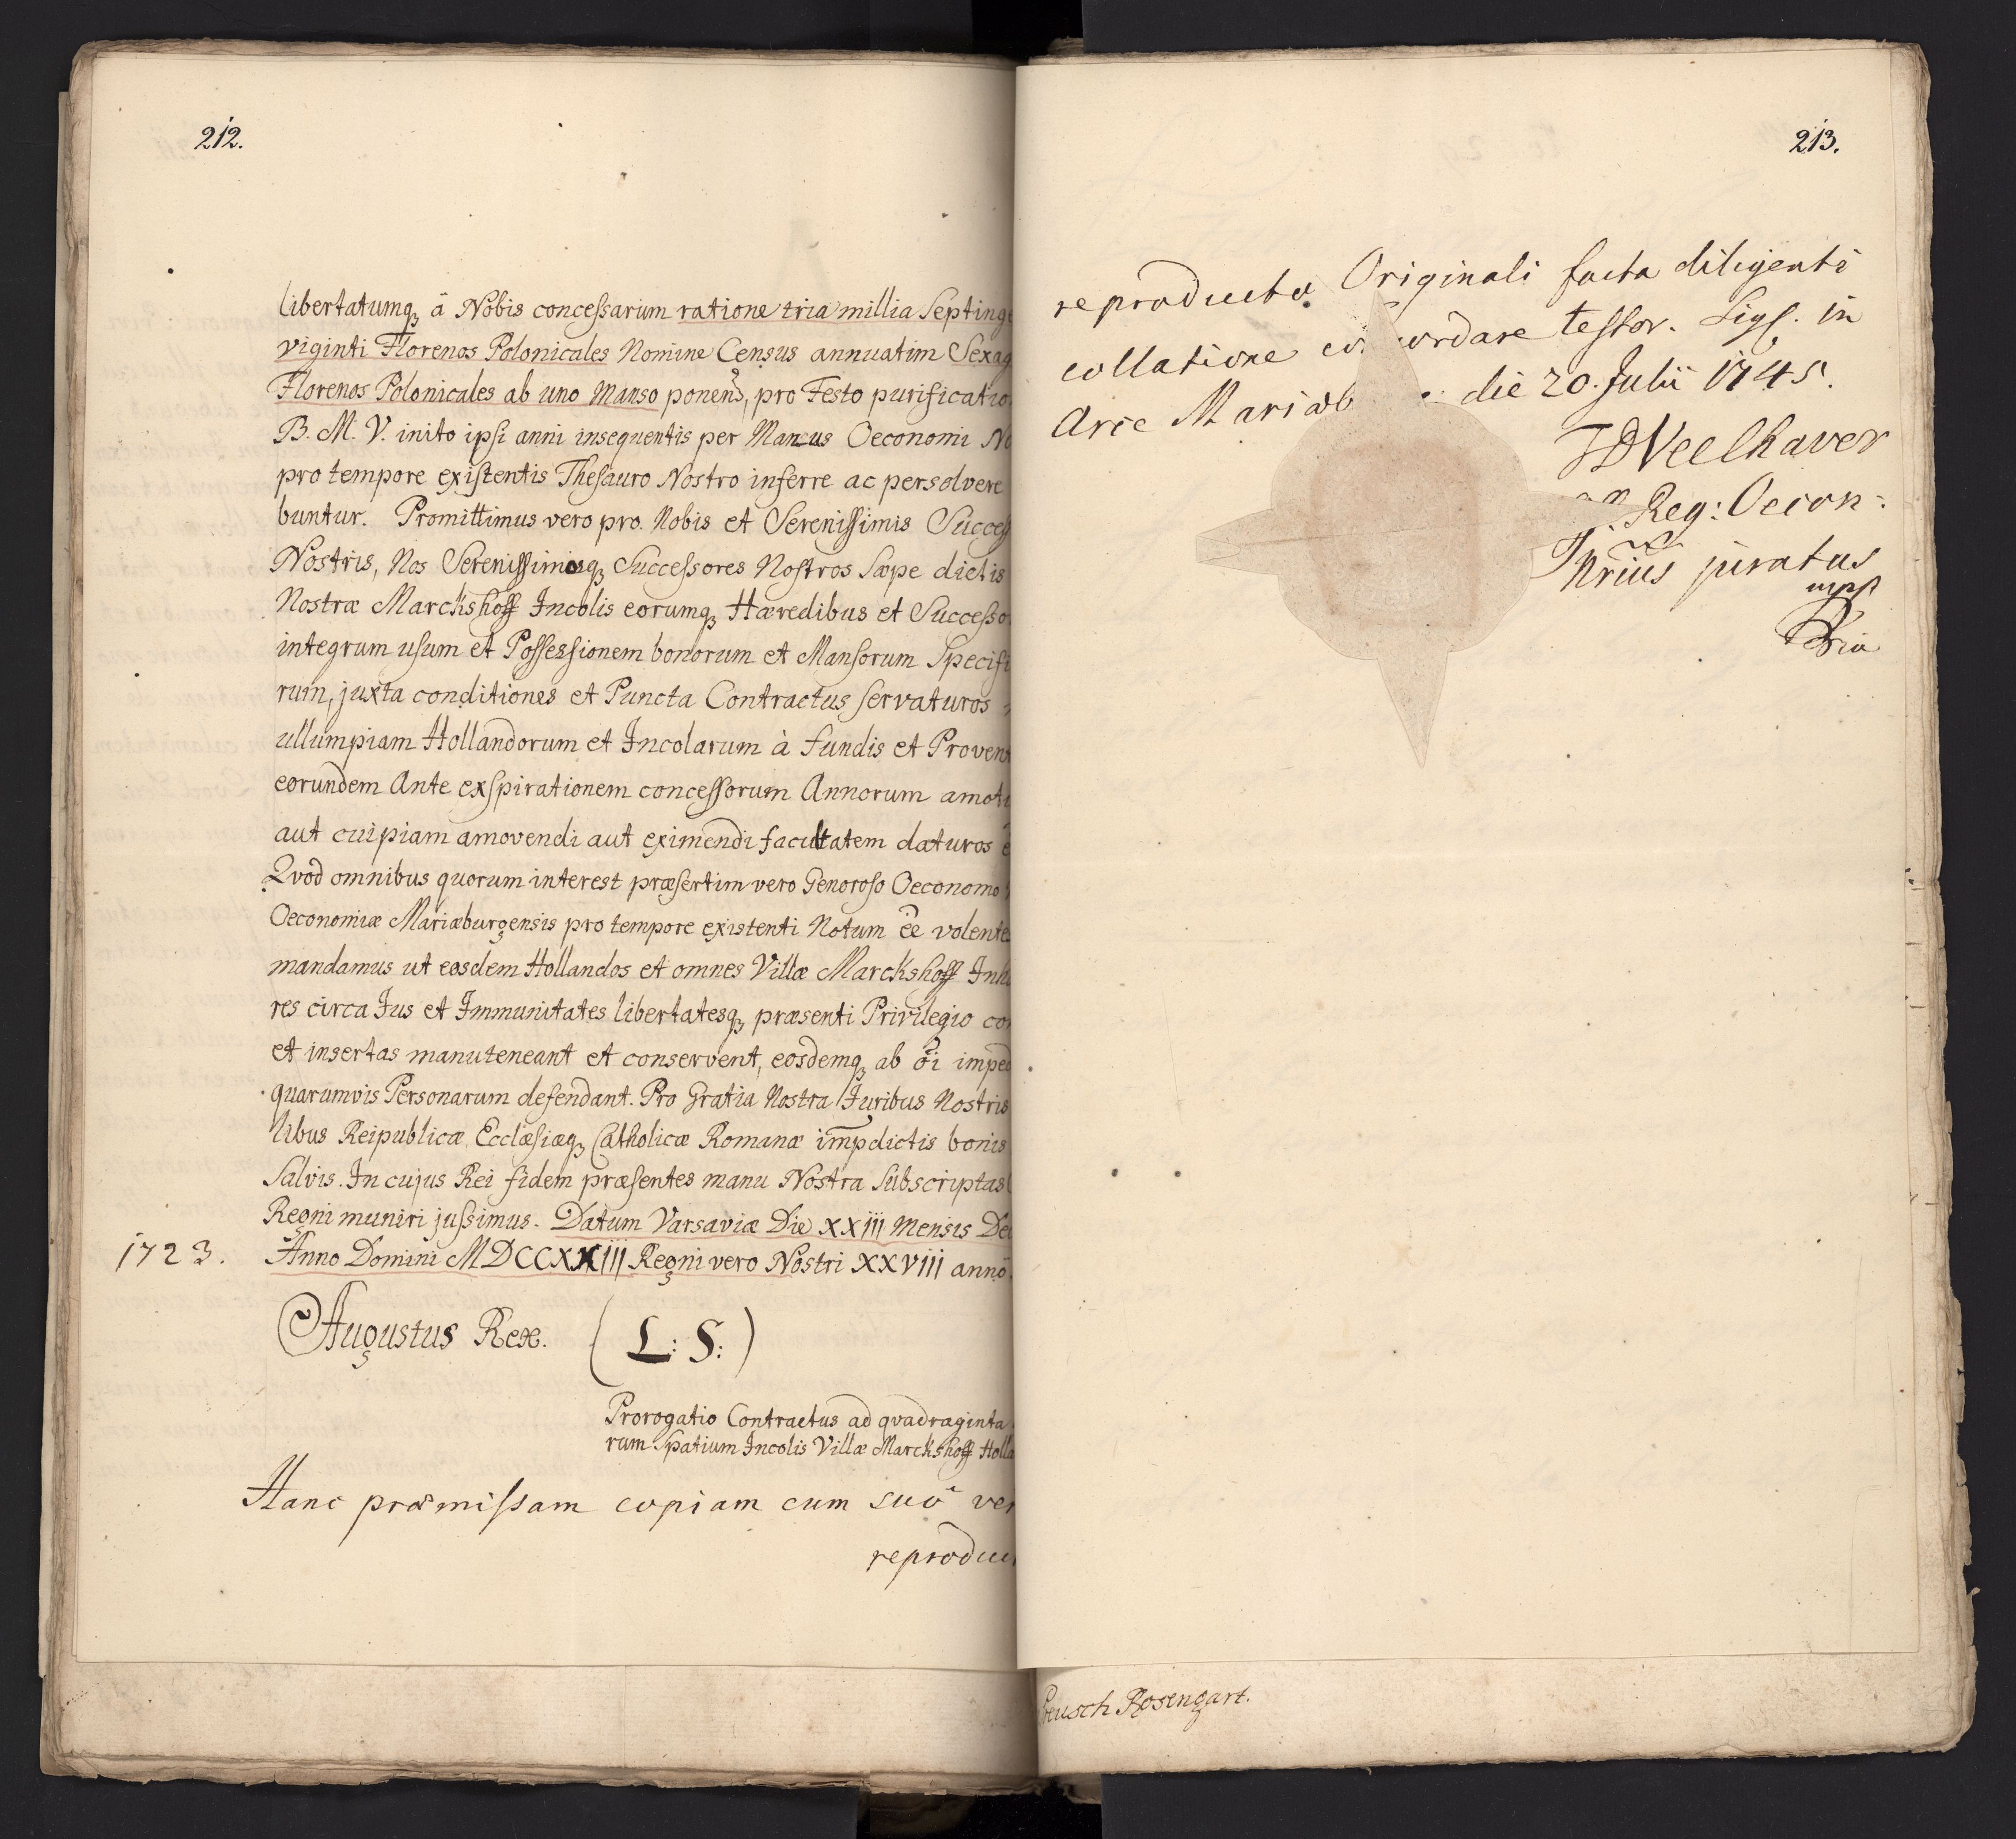 212.
libertatumq; á Nobis concessarum ratione tria millia Septing
viginti Florenos Polonicales Nomine Census annuatim Sexag
Florenos Polonicales ab uno Manso ponend, pro Festo purificatio
B. M. V. inito ipsi anni insequentis per Manus Oeconomi No
pro tempore existentis Thesauro Nostro inferre ac persolvere
buntur. Promittimus vero pro Nobis et Serenissimis Success
Nostris, Nos Serenissimosq; Successores Nostros Sæpe dictis
Nostræ Marckshoff Incolis eorumq; Hæredibus et Successo
integrum usum et Possessionem bonorum et Mansorum Specifi
rum, juxta conditiones et Puncta Contractus servaturos
ullumpiam Hollandorum et Incolarum à fundis et Provent
eorundem Ante exspirationem concessorum Annorum amot
aut cuipiam amovendi aut eximendi facultatem daturos e
Qvod omnibus quorum interest præsertim vero Generoso Oeconomo
Oeconomiæ Mariæburgensis pro tempore existenti Notum ee volentes
mandamus ut eosdem Hollandos et omnes Villæ Marckshoff Inh
res circa Jus et Immunitates libertatesq; præsenti Privilegio co
et insertas manuteneant et conservent, eosdemq; ab oi imped
quarumvis Personarum defendant. Pro Gratia Nostra Juribus Nostris
libus Reipublicæ, Ecclæsiæq; Catholicæ Romanæ impdictis bonis
Salvis. In cujus Rei fidem præsentes manu Nostra Subscriptas
Regni muniri jussimus. Datum Varsaviæ Die XXiii Mensis De
1723. Anno Domini MDCCXXiii Regni vero Nostri XXViii anno
Augustus Rex. (L: S:)
Prorogatio Contractus ad qvadraginta
rum Spatium Incolis Villæ Marckshoff Holla
Hanc præmissam copiam cum suo ver
reproduc
213.
reproducto Originali facta diligenti
collatione co ordare testor. Sigl. in
Arce Mariæb die 20. Julii 1745.
JDVeelhaver
Reg: Oecon:
Nrius juratus
mpp
ria
Preusch Rosengart.